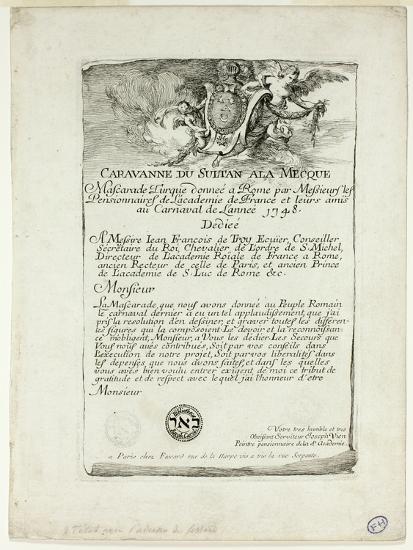 CARAVANNE DU SULTAN ALA MECQUE
Mascarade Turque donneé a Rome par Messieurs les
Pensionnaires de Lacademie de France et leurs amis
au Carnaval de Lanneé 1748.
Dedieé
A Messire Iean Francois de Troy Ecuier, Conseiller
Secretaire du Roi, Chevalier de Lordre de S. Michel,
Directeur de Lacademie Roiale de France a Rome,
ancien Recteur de celle de Paris, et ancien Prince
de Lacademie de S. Luc de Rome &c.
Monsieur
La Mascarade que nous avons donneé au Peuple Romain
le carnaval dernier a eu un tel applaudissement, que j'ai
pris la resolution d'en dessiner, et graver toutes les differen-
tes figures qui la composoient. Le devoir et la reconnoissan-
ce m'obligent, Monsieur, a Vous les dedier. Les Secours que
Vous nous avés contribués, Soit par vos conseils dans
l'execution de notre projet, Soit par vos liberalités dans
les depenses que nous avons faites, et dans les quelles
vous avés bien voulu entrer exigent de moi ce tribut de
gratitude et de respect avec le quel j'ai lhonneur d'etre
Monsieur
Votre tres humble et tres
Obeissant Serviteur Joseph Vien
Peintre pensionnaire de la d.e Academie.
a Paris chez Favard rue de la Harpe vis a vis la rue Serpente.
FH